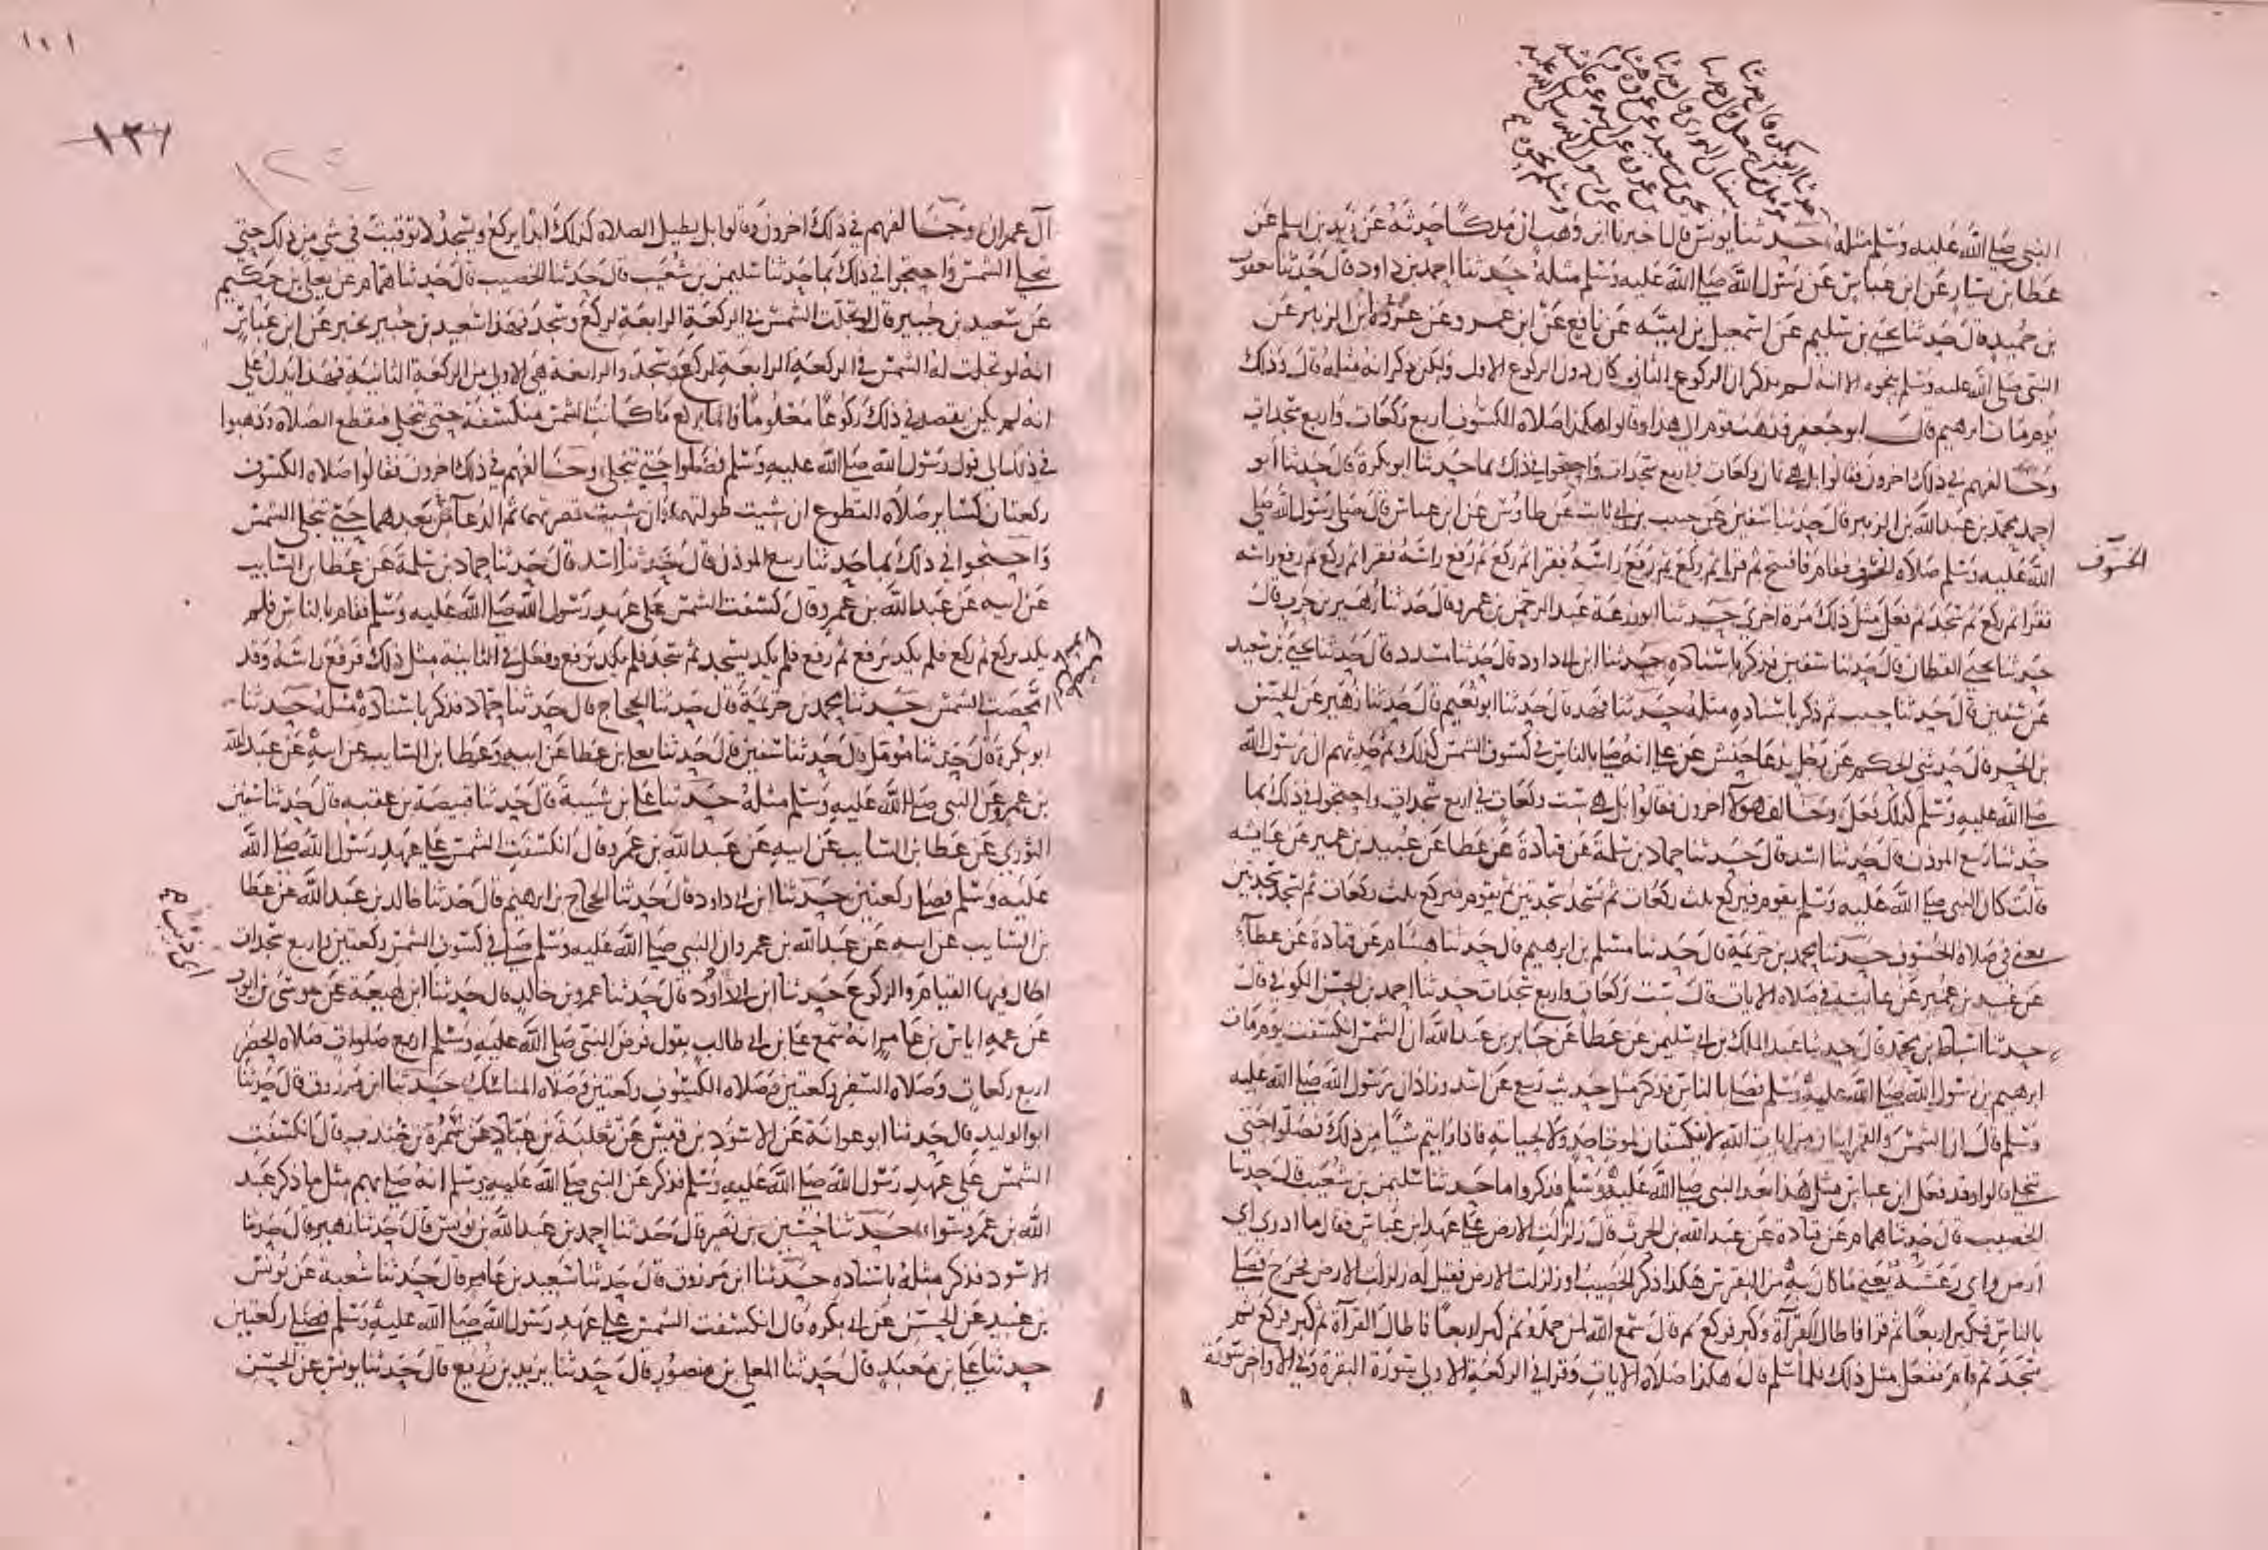 حدثنا ابو بكرة قال حدثنا
مومل بن اسمعيل قال حدثنا
سفيان الثوري قال حدثنا
يحيى بن سعيد عن عمرة
عن عائشة
عن رسول الله صلى الله عليه
وسلم نحوه
النبي صلى الله عليه وسلم مثله حدثنا يونس قال اخبرنا ابن وهب ان ملكا حدثه عن زيد بن اسلم عن
عطا بن يسار عن ابن عباس عن رسول الله صلى الله عليه وسلم مثله حدثنا احمد بن داود قال حدثنا يعقوب
بن حميد قال حدثنا يحيى بن سليم عن اسمعيل بن امية عن نافع عن ابن عمر وعن عروة ابن الزبير عن
النبي صلى الله عليه وسلم نحوه الا انه لم يذكر ان الركوع الثاني كان دون الركوع الاول ولكن ذكر انه مثله قال وذلك
يوم مات ابرهيم قال ابو جعفر فذهب قوم الى هذا وقالوا هكذا صلاه الكسوف اربع ركعات واربع سجدات
وخالفهم في ذلك اخرون فقالوا بل هي ثمان ركعات في اربع سجدات واحتجوا في ذلك بما حدثنا ابو بكرة قال حدثنا ابو
احمد محمد بن عبد الله بن الزبير قال حدثنا سفين عن حبيب بن ابي ثابت عن طاوس عن ابن عباس قال صلى رسول الله صلى
الله عليه وسلم صلاه الخسوف فقام فافتتح ثم قرا ثم ركع ثم رفع راسه فقرا ثم ركع ثم رفع راسه فقرا ثم ركع ثم رفع راسه
الخسوف
فقرا ثم ركع ثم سجد ثم فعل مثل ذلك مرة اخرى حدثنا ابو زرعة عبد الرحمن بن عمرو قال حدثنا زهير بن حرب قال
حدثنا يحيى القطان قال حدثنا سفين فذكر باسناده حدثنا ابن ابي داود قال حدثنا مسدد قال حدثنا يحيى بن سعيد
عن سفين قال حدثنا حبيب ثم ذكر باسناده مثله حدثنا فهد قال حدثنا ابو نعيم قال حدثنا زهير عن الحسن
بن الحر قال حدثني الحكم عن رجل يدعا حنش عن علي انه صلى بالناس في كسوف الشمس كذلك ثم حدثهم ان رسول الله
صلى الله عليه وسلم كذلك فعل وخالف هولا اخرون فقالوا بل هي ست ركعات في اربع سجدات واحتجوا في ذلك بما
حدثنا ربيع الموذن قال حدثنا اسد قال حدثنا حماد بن سلمة عن قتادة عن عطا عن عبيد بن عمير عن عايشه
قالت كان النبي صلى الله عليه وسلم يقوم فيركع ثلث ركعات ثم يسجد سجدتين ثم يقوم فيركع ثلث ركعات ثم يسجد سجدتين
يعني في صلاه الخسوف حدثنا محمد بن خزيمة قال حدثنا مسلم بن ابرهيم قال حدثنا هشام عن قتادة عن عطاء
عن عبيد بن عمير عن عائشة في صلاه الايات قال ست ركعات واربع سجدات حدثنا احمد بن الحسن الكوفي قال
حدثنا اسباط بن محمد قال حدثنا عبد الملك بن ابي سليمن عن عطا عن جابر بن عبد الله ان الشمس انكسفت يوم مات
ابرهيم بن رسول الله صلى الله عليه وسلم فصلى بالناس فذكر مثل حديث ربيع عن اسد وزاد ان رسول الله صلى الله عليه
وسلم قال ان الشمس والقمر ايتان من ايات الله لا ينكسفان لموت احد ولا لحياته فاذا رايتم شيا من ذلك فصلوا حتى
تنجلي قالوا وقد فعل ابن عباس مثل هذا بعد النبي صلى الله عليه وسلم فذكروا ما حدثنا سليمن بن شعيب قال حدثنا
الخصيب قال حدثنا همام عن قتادة عن عبد الله بن الحرث قال زلزلت الارض على عهد ابن عباس فقال ما ادري اي
ارض واي رعشه يعني ماكان به من النقرس هكذا ذكر الخصيب او زلزلت الارض فقيل له زلزلت الارض فخرج فصلى
بالناس فكبر اربعا ثم قرا فاطال القراة وكبر فركع ثم قال سمع الله لمن حمده ثم كبر اربعا فاطال القرآة ثم كبر فركع ثم
سجد ثم قام ففعل مثل ذلك فلما سلم قال هكذا صلاه الايات وقرا في الركعه الاولى بسورة البقرة وفي الاواخر سورة
١٠١
١٣٦
١٢٤
آل عمران وخالفهم في ذلك اخرون وقالوا بل يطيل الصلاه كذلك ابدا يركع ويسجد لا توقيت في شي من ذلك حتى
تنجلي الشمس واحتجوا في ذلك بما حدثنا سليمن بن شعيب قال حدثنا الخصيب قال حدثنا همام عن يعلي بن حكيم
عن سعيد بن جبير قال لو تجلت الشمس في الركعة الرابعة لركع وسجد فهذا سعيد بن جبير يخبر عن ابن عباس
انه لو تجلت له الشمس في الركعة الرابعة لركع وسجد والرابعة هي الاولى من الركعة الثانية فهذا يدل على
انه لم يكن يقصد في ذلك ركوعا معلوما وانما يركع ما كانت الشمس منكسفة حتى تنجلي فيقطع الصلاه وذهبوا
في ذلك الى قول رسول الله صلى الله عليه وسلم فصلوا حتى تنجلي وخالفهم في ذلك اخرون فقالوا صلاه الكسوف
ركعتان كساير صلاه التطوع ان شيت طولتهما وان شيت قصرتهما ثم الدعا من بعدهما حتى تنجلي الشمس
واحتجوا في ذلك بما حدثنا ربيع الموذن قال حدثنا اسد قال حدثنا حماد بن سلمة عن عطا بن السايب
عن ابيه عن عبد الله بن عمرو قال كسفت الشمس على عهد رسول الله صلى الله عليه وسلم فقام بالناس فلم
يكد يركع ثم ركع فلم يكد يرفع ثم رفع فلم يكد يسجد ثم سجد فلم يكد يرفع وفعل في الثانية مثل ذلك فرفع راسه وقد
امحصت الشمس حدثنا محمد بن خزيمة قال حدثنا الحجاج قال حدثنا حماد فذكر باسناده مثله حدثنا
ابو بكرة قال حدثنا مومل قال حدثنا سفين قال حدثنا يعلى بن عطا عن ابيه وعطا بن السايب عن ابيه عن عبد الله
بن عمرو عن النبي صلى الله عليه وسلم مثله حدثنا علي بن شيبة قال حدثنا قبيصة بن عقبه قال حدثنا سفين
الثوري عن عطا بن السايب عن ابيه عن عبد الله بن عمرو قال انكسفت الشمس على عهد رسول الله صلى الله
عليه وسلم فصلى ركعتين حدثنا ابن ابي داود قال حدثنا الحجاج بن ابرهيم قال حدثنا خالد بن عبد الله عن عطا
بن السايب عن ابيه عن عبد الله بن عمرو ان النبي صلى الله عليه وسلم صلى في كسوف الشمس ركعتين واربع سجدات
اطال فيها القيام والركوع حدثنا ابن ابي داود قال حدثنا عمرو بن خالد قال حدثنا ابن لهيعة عن موسى بن ايوب
عن عمه اياس بن عامر انه سمع علي بن ابي طالب يقول فرض النبي صلى الله عليه وسلم اربع صلوات صلاه الحضر
اربع ركعات وصلاه السفر ركعتين وصلاه الكسوف ركعتين وصلاه المناسك حدثنا ابن مرزوق قال حدثنا
ابو الوليد قال حدثنا ابو عوانة عن الاسود بن قيس عن ثعلبة بن عباد عن سمرة بن جندب قال انكسفت
الشمس على عهد رسول الله صلى الله عليه وسلم فذكر عن النبي صلى الله عليه وسلم انه صلى بهم مثل ما ذكر عبد
الله بن عمرو سواء حدثنا حسين بن نصر قال حدثنا احمد بن عبد الله بن يونس قال حدثنا زهير قال حدثنا
الاسود فذكر مثله باسناده حدثنا ابن مرزوق قال حدثنا سعيد بن عامر قال حدثنا شعبة عن يونس
بن عبيد عن الحسن عن ابي بكره قال انكسفت الشمس على عهد رسول الله صلى الله عليه وسلم فصلى ركعتين
حدثنا علي بن معبد قال حدثنا المعلى بن منصور قال حدثنا يزيد بن زريع قال حدثنا يونس عن الحسن